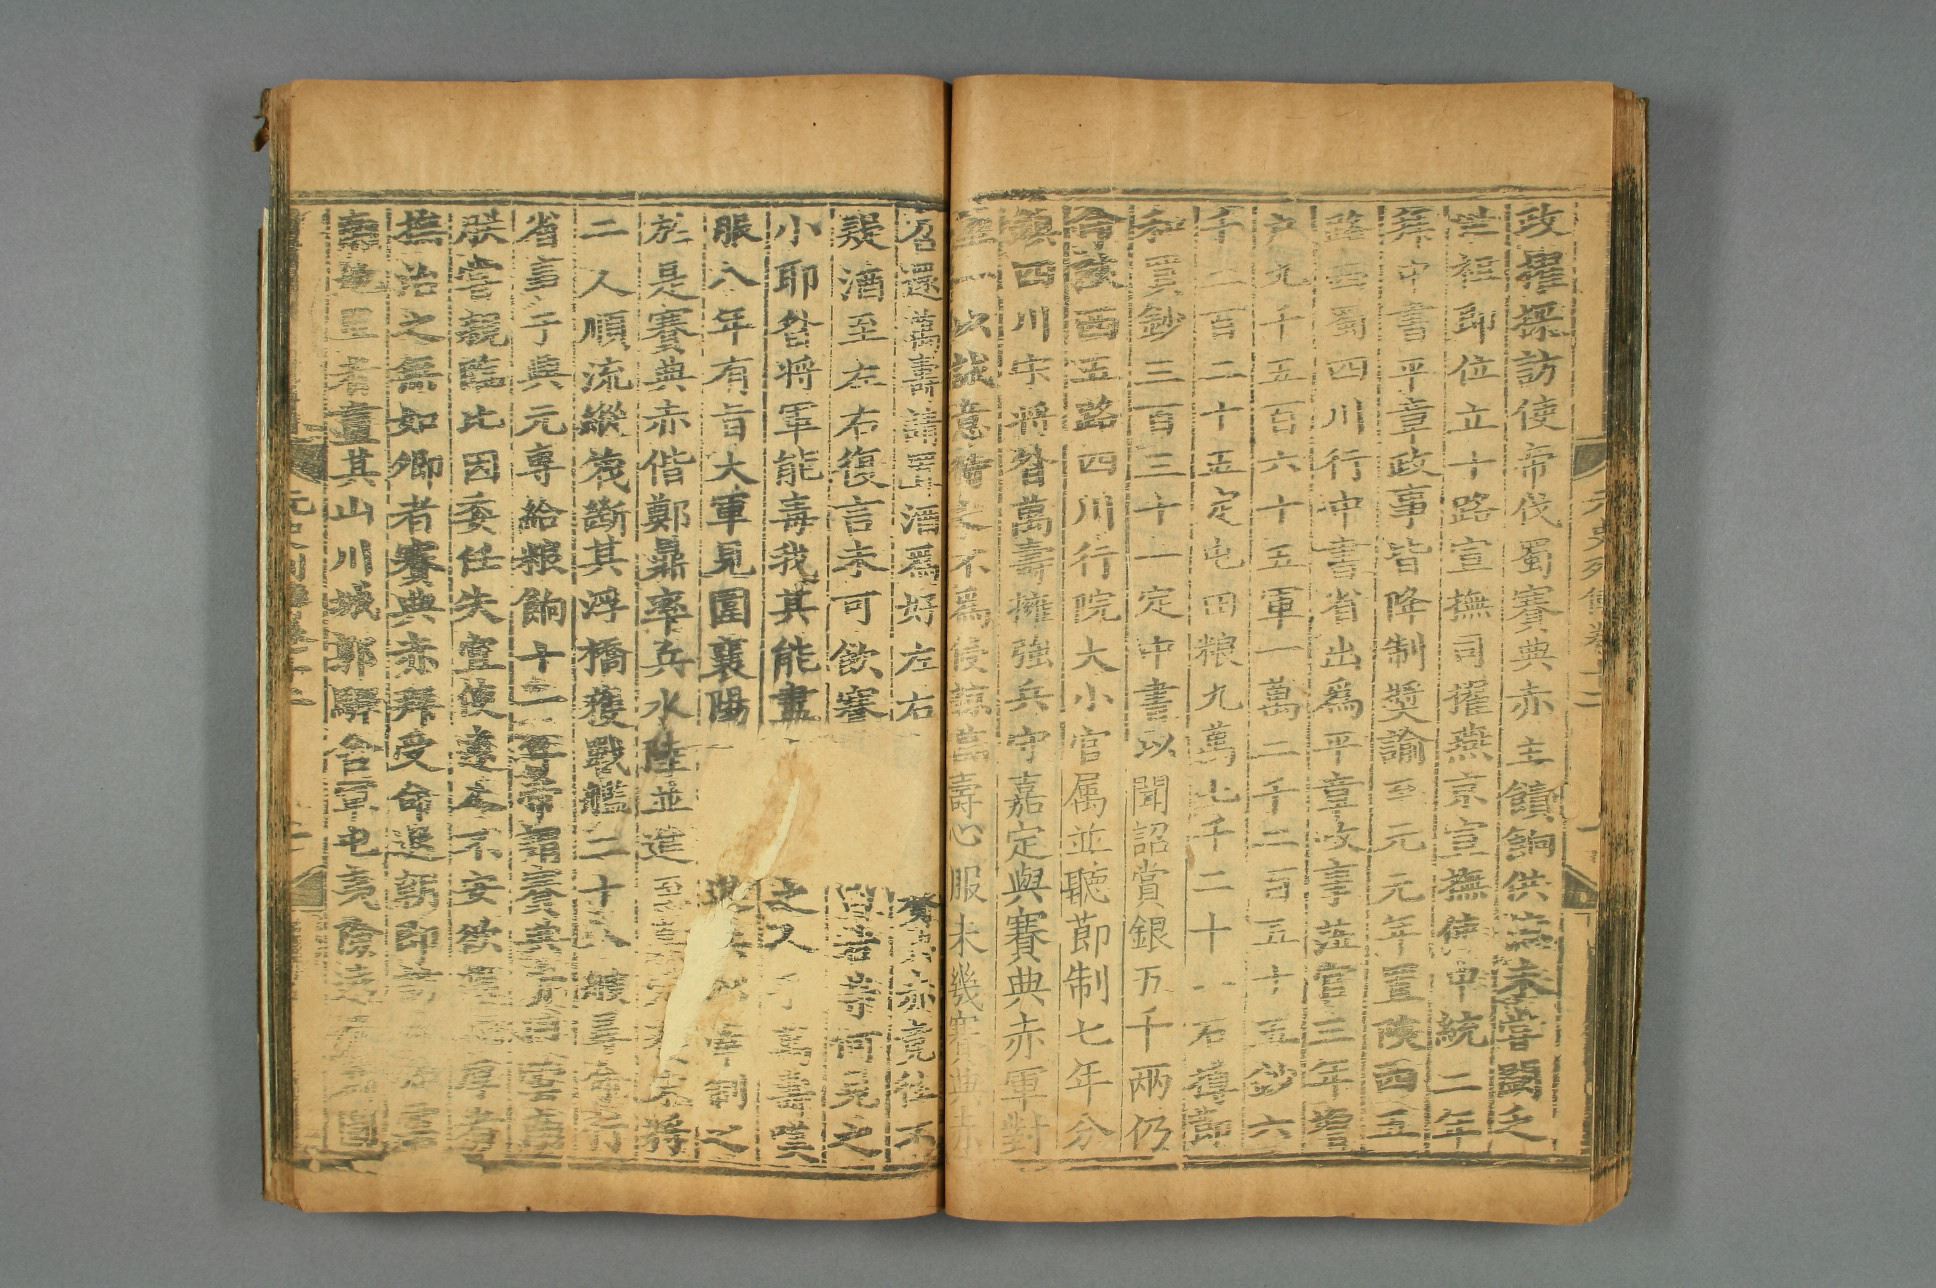 政擢採訪使帝伐蜀賽典赤主饋餉供億未嘗闕乏
世祖即位立十路宣撫司擢燕京宣撫使中統二年
拜中書平章政事皆降制獎諭至元元年置陝西五
路西蜀四川行中書省出爲平章政事莅官三年增
户九千五百六十五軍一萬二千二百五十五鈔六
千二百二十五定屯田粮九萬七千二十一石撙節
和買鈔三百三十一定中書以聞詔賞銀五千兩仍
命陝西五路四川行院大小官属並聽節制七年分
鎮四川宋將昝萬壽擁強兵守嘉定與賽典赤軍對
壘一以誠意待之不爲侵掠萬壽心服未幾賽典赤
召還萬壽請置酒爲好左右 赤竟往不
疑酒至左右復言未可飲賽 若等何見之
小耶昝將軍能毒我其能盡 之人 萬壽嘆
服八年有旨大軍見圍襄陽 制之
於是賽典赤偕鄭鼎率兵水陸並進至 將
二人順流縱筏斷其浮橋獲戰艦二十八艘 行
省言于興元專給粮餉十一年帝謂賽典赤曰雲南
朕嘗親臨比因委任失宜使遠人不安欲選謹厚者
撫治之無如卿者賽典赤拜受命退朝即 雲
南地里者畫其山川城郭驛舍軍屯夷險遠 圖
元史列傳卷十二